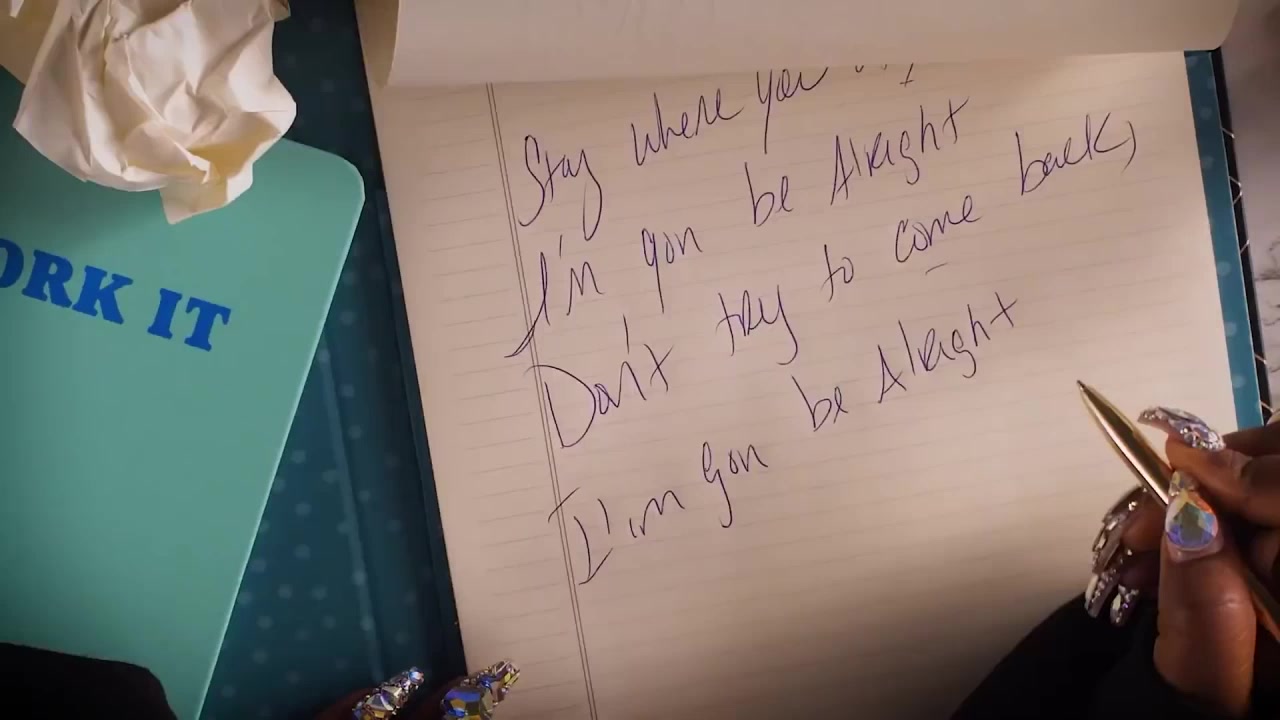 ORK IT
Stay where you
I'm gon be Alright
Don't try to come back,
I'm gon be Alright